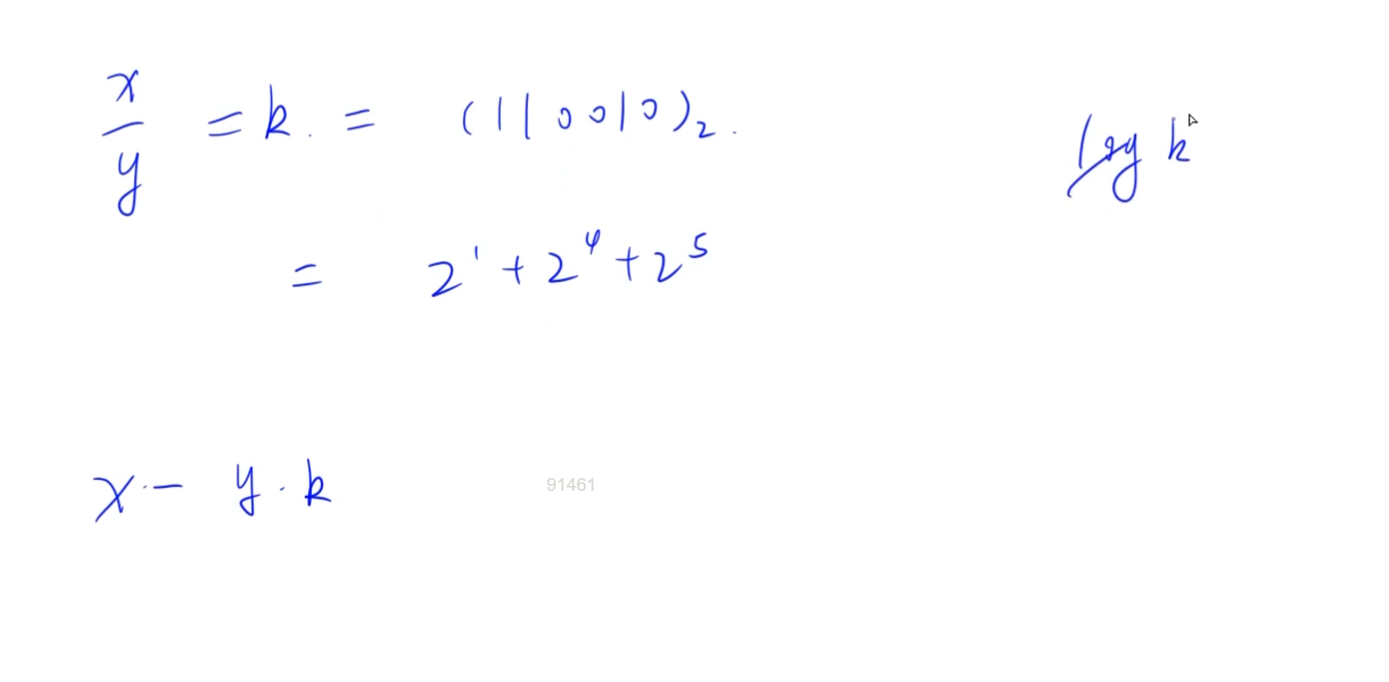 x/y = k. = (110010)₂.
log k
= 2¹ + 2⁴ + 2⁵
x - y · k
91461